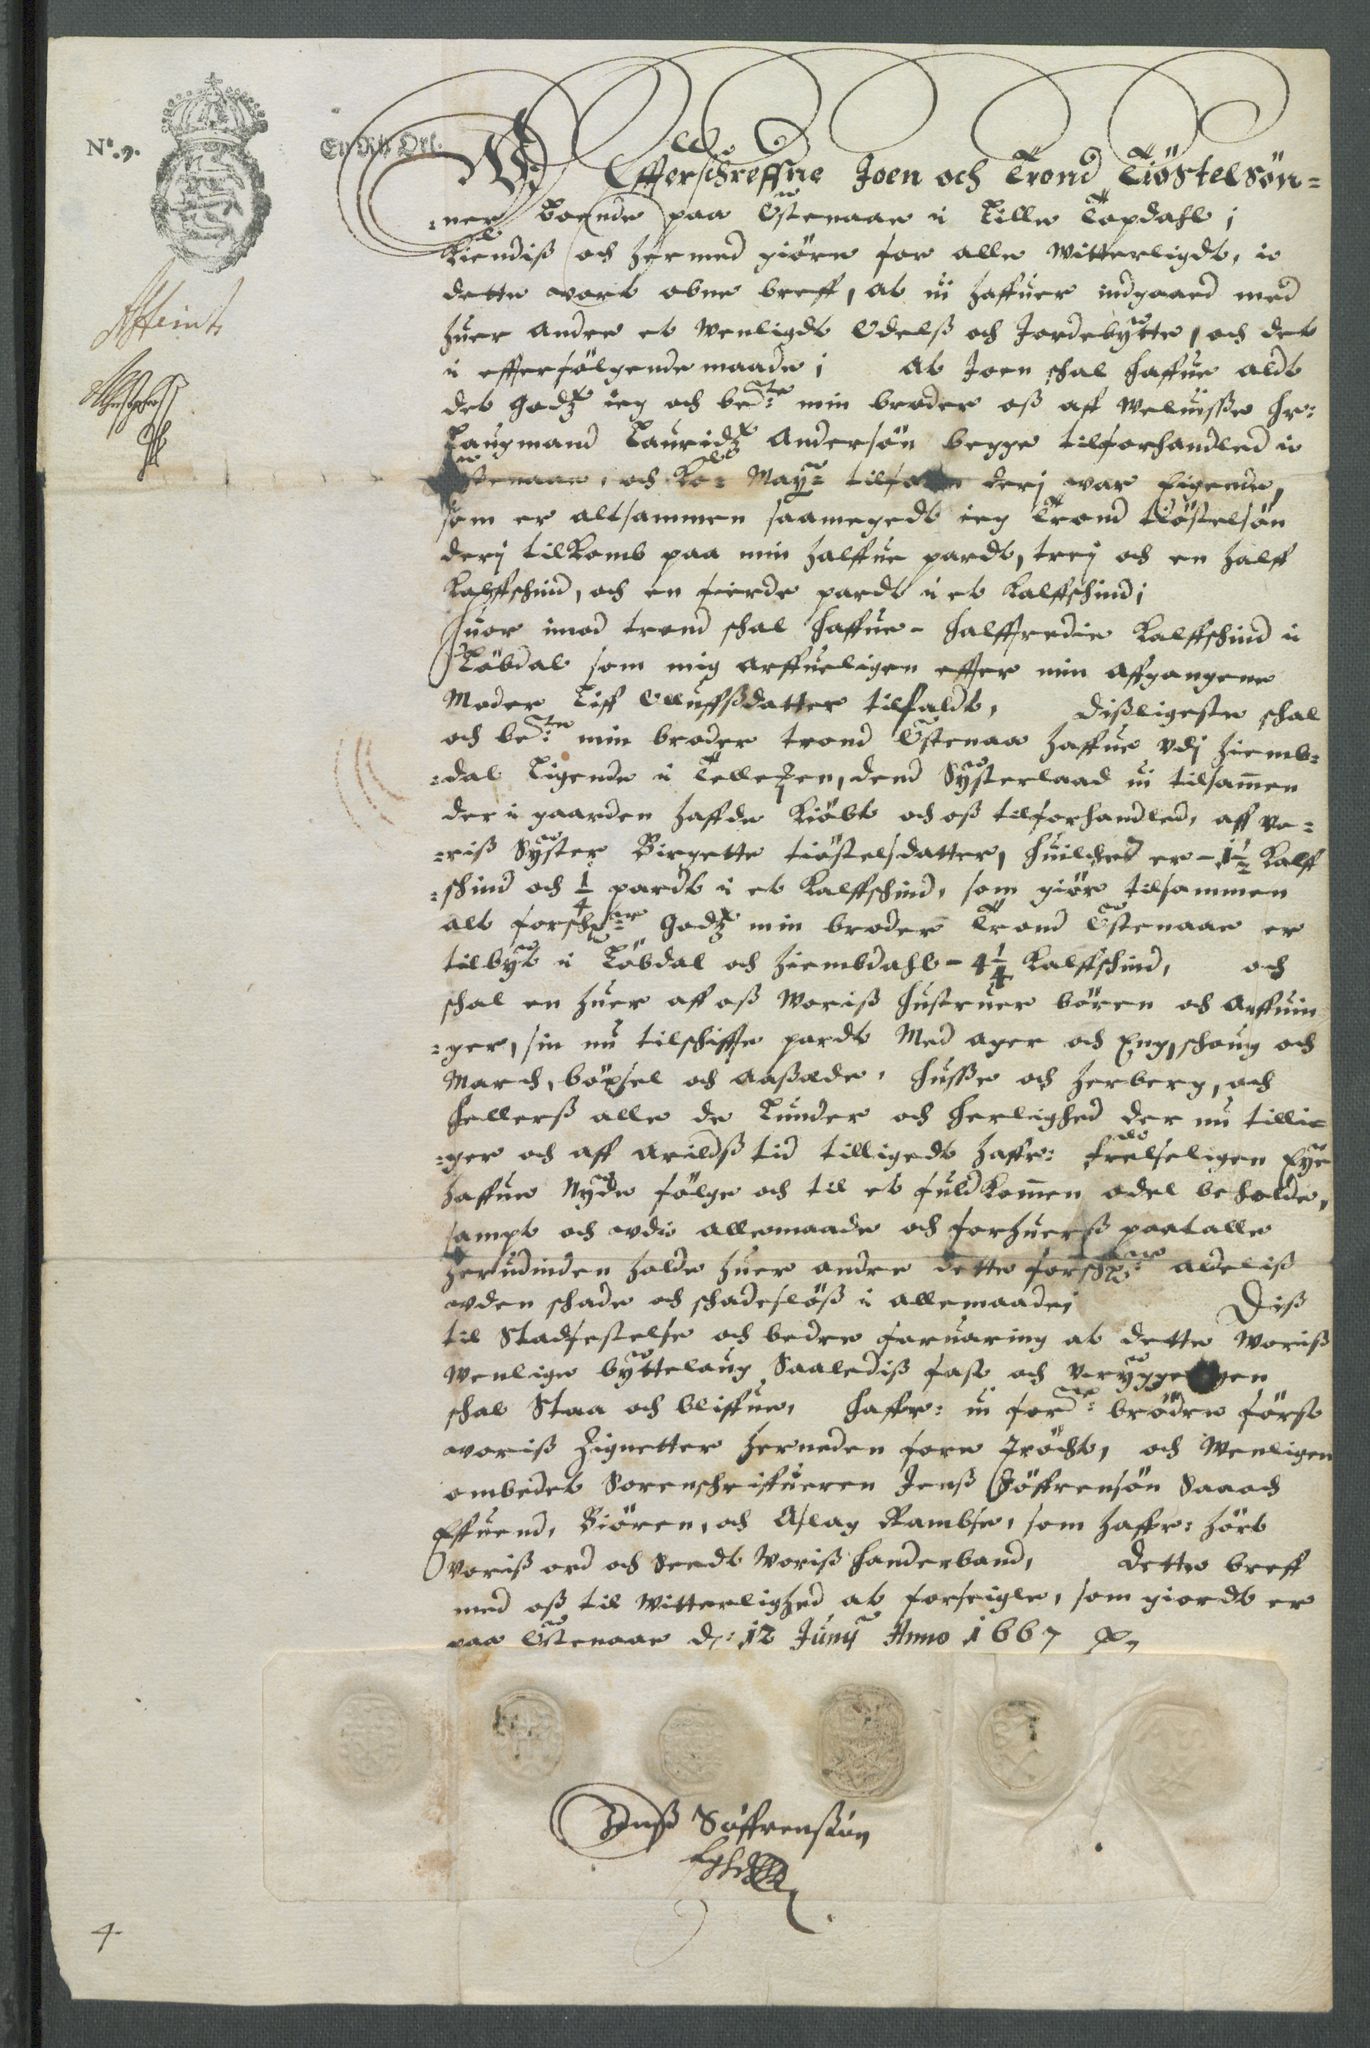 N°. 9.
En Rix Ort.
Wj Effterschreffne Joen och Trond Tiöstelsön=
=ner boende paa Östenaae i Lille Topdahl;
Kiendiß och hermed giöre for alle witterligdt, i
dette wort obne breff, at wi haffuer indgaaed med
huer andre et wenligdt Odelß och Jordebytte, och det
i effterfölgende maade; At Joen schal haffue aldt
det godz ieg och bete: min broder oß aff weluisse Hr:
Laugmand Lauridz Andersön begge tilforhandled i
Östenaae, och Ko: May: tilforn derj war Eigende,
som er altsammen saamegedt ieg Trond tiöstelsön
derj tilkomb paa min halffue pardt, trej och en halff
Kalffschind, och en fierde pardt i et Kalffschind;
Huor imod trond schal haffue - halffredie Kalffschind i
Löbdal som mig arffueligen effter min affgangene
Moder Liff Olluffßdatter tilfaldt, dißligeste schal
och bete: min broder trond Östenaae haffue vdj hiemb=
=dal Ligende i Tellemken, dend Systerlaad wi tilsammen
der i gaarden haffde Kiöbt och oß tilforhandled, aff vo=
=riß Syster Birgette tiöstelsdatter, huilched er - 1½ Kalff
=schind och ¼ pardt i et Kalffschind, som giör tilsammen
alt forschr: godz min broder Trond Östenaae er
tilbyt i Löbdal och hiembdahl - 4¼ Kalffschind, och
schal en huer aff oß woriß hustruer bören och arffuin
=ger, sin nu tilschiffte pardt Med ager och Eng, schoug och
March, böxsel och aaßæde, husse och herberg, och
hellerß alle de Lunder och herlighed der nu tillig=
=ger och aff arildß tid tilligedt haffr: frelseligen Eye
haffue Nyde fölge och til et fuldkommen odel beholde,
sampt och vdi allemaade och forhuerß paatalle
herudinden holde huer andre dette forschr: aldeliß
vden schade och schadeslöß i allemaade; Diß
til Stadfestelse och bedre foruaring at dette woriß
wenlige byttelaug Saalediß fast och vryggeligen
schal Staa och bliffue, haffr: wi forde: brödre först
woriß Zignetter herneden fore tröcht, och wenligen
ombedet Sorenschriffueren Jenß Söffrensön Saa och
Effuend, Biören, och Aslag Rambse, som haffr: hört
voriß ord och Seedt woriß handerband, dette breff
med oß til witterlighed at forseigle, som giordt er
paa Östenaae d: 12 Junij Anno 1667
Jenß Söffrensön
4.